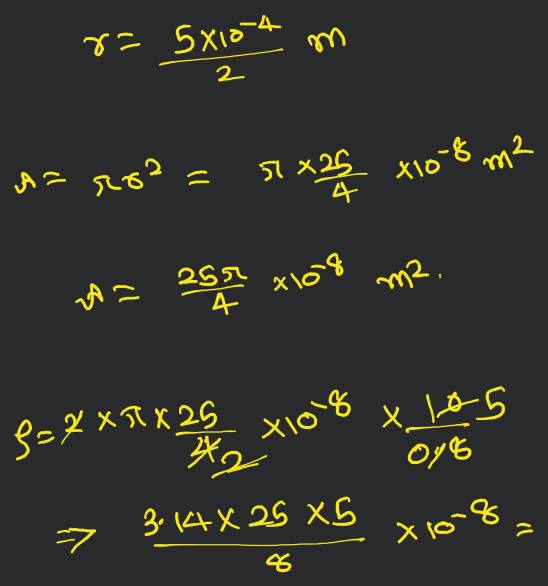 r = 5×10⁻⁴/2 m
A = πr² = π × 25/4 × 10⁻⁸ m²
A = 25π/4 × 10⁻⁸ m².
ρ = 2 × π × 25/4 2 × 10⁻⁸ × 10 5/0.8
⇒ 3.14 × 25 × 5/8 × 10⁻⁸ =